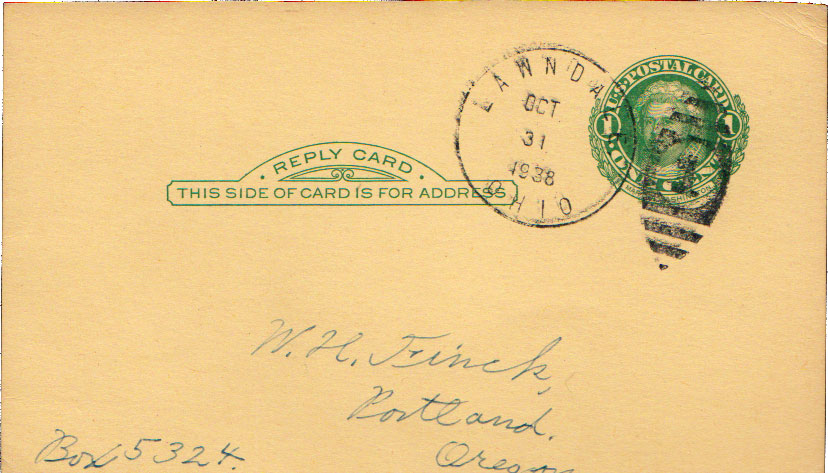 U.S. POSTAL CARD
1 1
ONE CENT
LAWNDALE
OCT
31
1938
OHIO
REPLY CARD
THIS SIDE OF CARD IS FOR ADDRESS
W. H. Finck,
Portland.
Box 5324. Oregon